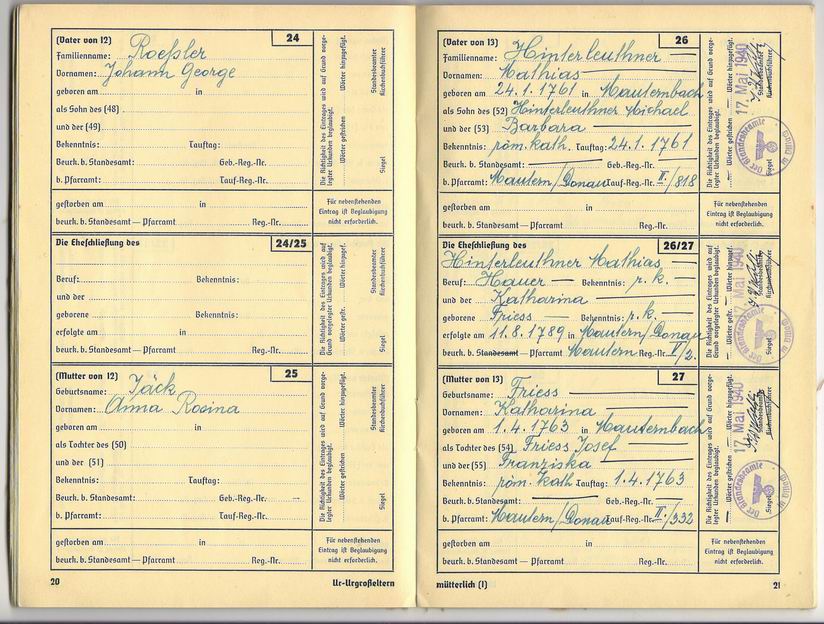 (Vater von 12) 24
Familienname: Roeßler
Vornamen: Johann George
geboren am in
als Sohn des (48)
und der (49)
Bekenntnis: Tauftag:
Beurk. b. Standesamt: Geb.-Reg.-Nr.
b. Pfarramt: Tauf-Reg.-Nr.
Die Richtigkeit des Eintrages wird auf Grund vorge-
legter Urkunden beglaubigt.
Wörter gestrichen Wörter hinzugefügt.
Standesbeamter
Kirchenbuchführer
Siegel
gestorben am in
beurk. b. Standesamt — Pfarramt Reg.-Nr.
Für nebenstehenden
Eintrag ist Beglaubigung
nicht erforderlich.
Die Eheschließung des 24/25
Beruf: Bekenntnis:
und der
geborene Bekenntnis:
erfolgte am in
beurk. b. Standesamt — Pfarramt Reg.-Nr.
Die Richtigkeit des Eintrages wird auf
Grund vorgelegter Urkunden beglaubigt.
Wörter gestr. Wörter hinzugef.
Standesbeamter
Kirchenbuchführer
Siegel
(Mutter von 12) 25
Geburtsname: Jäck
Vornamen: Anna Rosina
geboren am in
als Tochter des (50)
und der (51)
Bekenntnis: Tauftag:
Beurk. b. Standesamt: Geb.-Reg.-Nr.
b. Pfarramt: Tauf-Reg.-Nr.
Die Richtigkeit des Eintrages wird auf Grund vorge-
legter Urkunden beglaubigt.
Wörter gestrichen Wörter hinzugefügt.
Standesbeamter
Kirchenbuchführer
Siegel
gestorben am in
beurk. b. Standesamt — Pfarramt Reg.-Nr.
Für nebenstehenden
Eintrag ist Beglaubigung
nicht erforderlich.
20 Ur-Urgroßeltern
(Vater von 13) 26
Familienname: Hinterleuthner
Vornamen: Mathias
geboren am 24.1.1761 in Mauternbach
als Sohn des (52) Hinterleuthner Michael
und der (53) Barbara
Bekenntnis: röm. kath. Tauftag: 24.1.1761
Beurk. b. Standesamt: Geb.-Reg.-Nr.
b. Pfarramt: Mautern/Donau Tauf-Reg.-Nr. II./818
Die Richtigkeit des Eintrages wird auf Grund vorge-
legter Urkunden beglaubigt.
Wörter gestrichen Wörter hinzugefügt.
17. Mai 1940
Der Standesbeamte
Siegel
gestorben am in
beurk. b. Standesamt — Pfarramt Reg.-Nr.
Für nebenstehenden
Eintrag ist Beglaubigung
nicht erforderlich.
Die Eheschließung des 26/27
Hinterleuthner Mathias
Beruf: Hauer Bekenntnis: r. k.
und der Katharina
geborene Friess Bekenntnis: r. k.
erfolgte am 11.8.1789 in Mautern/Donau
beurk. b. Standesamt Pfarramt Mautern Reg.-Nr. II/2.
Die Richtigkeit des Eintrages wird auf
Grund vorgelegter Urkunden beglaubigt.
Wörter gestr. Wörter hinzugef.
17. Mai 1940
Der Standesbeamte
Siegel
(Mutter von 13) 27
Geburtsname: Friess
Vornamen: Katharina
geboren am 1.4.1763 in Mauternbach
als Tochter des (54) Friess Josef
und der (55) Franziska
Bekenntnis: röm. kath Tauftag: 1.4.1763
Beurk. b. Standesamt: Geb.-Reg.-Nr.
b. Pfarramt: Mautern/Donau Tauf-Reg.-Nr. II./332
Die Richtigkeit des Eintrages wird auf Grund vorge-
legter Urkunden beglaubigt.
Wörter gestrichen Wörter hinzugefügt.
17. Mai 1940
Der Standesbeamte
Siegel
gestorben am in
beurk. b. Standesamt — Pfarramt Reg.-Nr.
Für nebenstehenden
Eintrag ist Beglaubigung
nicht erforderlich.
mütterlich (I) 21